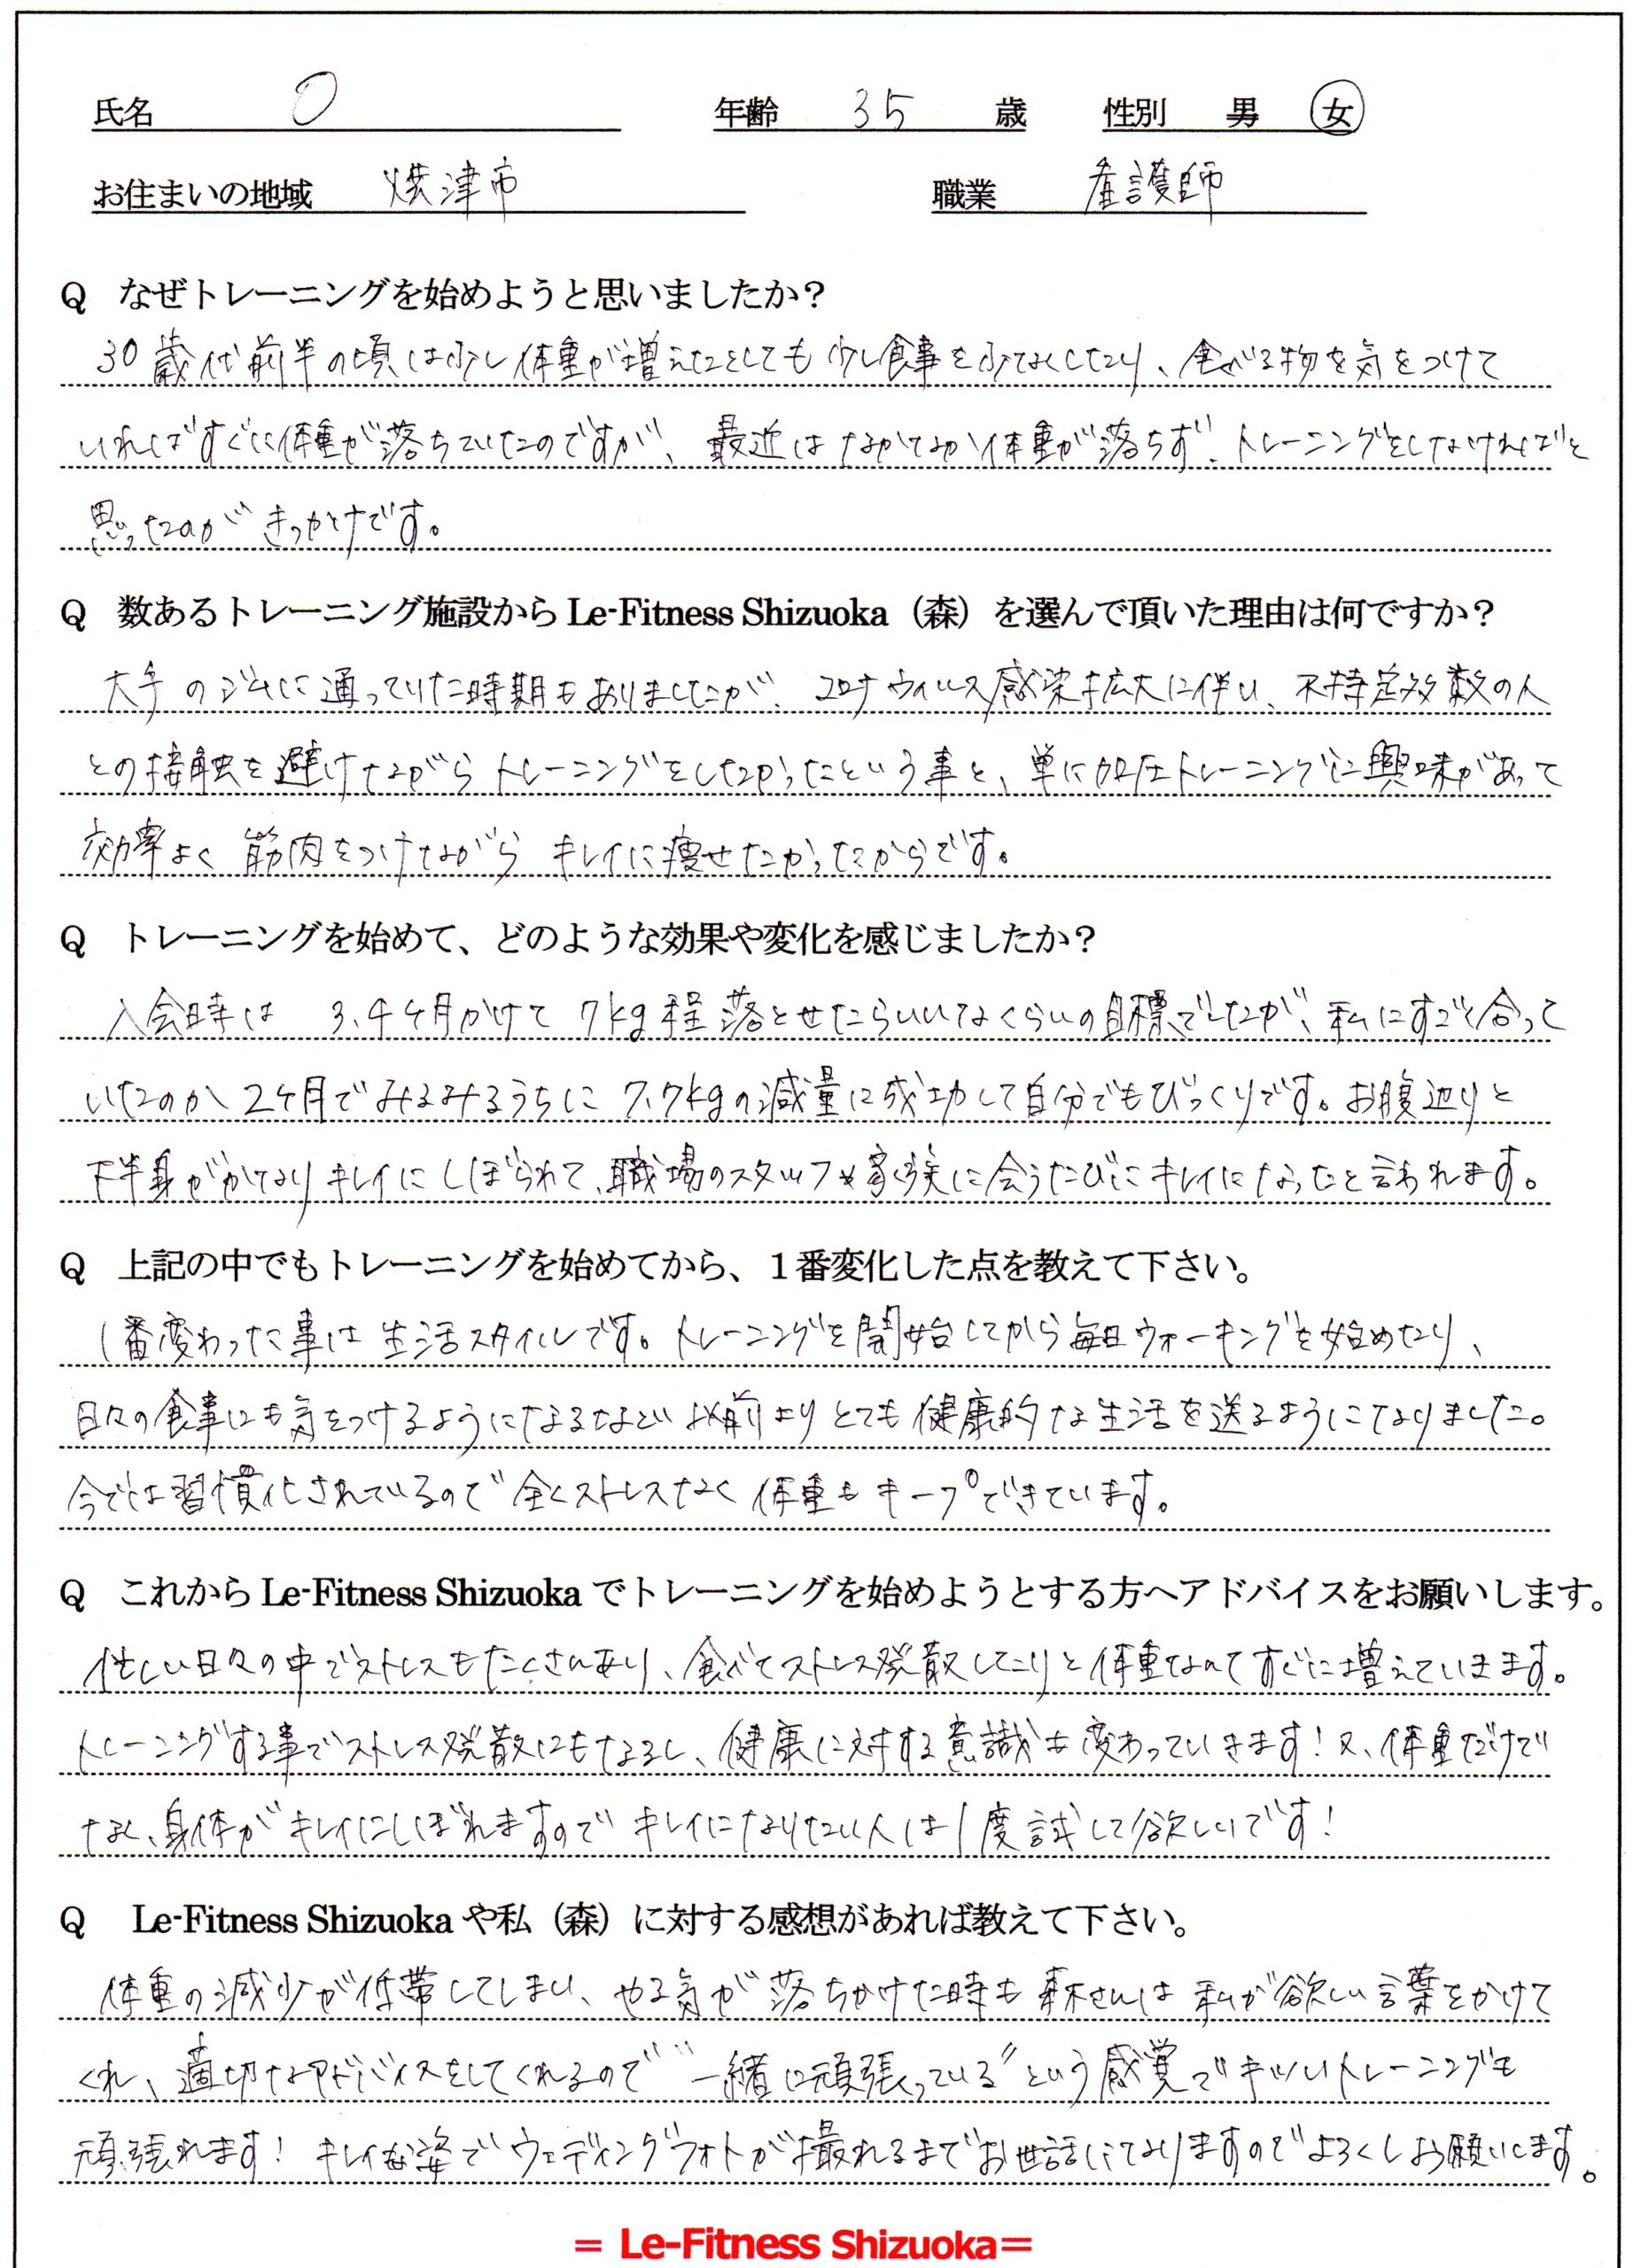 氏名 O 年齢 35 歳 性別 男 女
お住まいの地域 焼津市 職業 看護師
Q なぜトレーニングを始めようと思いましたか？
30歳代前半の頃は少し体重が増えたとしても少し食事を少なくしたり、食べる物を気をつけて
いればすぐに体重が落ちていたのですが、最近はなかなか体重が落ちず、トレーニングをしなければと
思ったのがきっかけです。
Q 数あるトレーニング施設から Le-Fitness Shizuoka（森）を選んで頂いた理由は何ですか？
大手のジムに通っていた時期もありましたが、コロナウィルス感染拡大に伴い、不特定多数の人
との接触を避けながらトレーニングをしたかったという事と、単に加圧トレーニングに興味があって
効率よく筋肉をつけながらキレイに痩せたかったからです。
Q トレーニングを始めて、どのような効果や変化を感じましたか？
入会時は 3、4ヶ月かけて 7kg程落とせたらいいなくらいの目標でしたが、私にすごく合って
いたのか 2ヶ月でみるみるうちに 7.7kgの減量に成功して自分でもびっくりです。お腹辺りと
下半身がかなりキレイにしぼられて、職場のスタッフや家族に会うたびにキレイになったと言われます。
Q 上記の中でもトレーニングを始めてから、１番変化した点を教えて下さい。
1番変わった事は生活スタイルです。トレーニングを開始してから毎日ウォーキングを始めたり、
日々の食事にも気をつけるようになるなど以前よりとても健康的な生活を送るようになりました。
今では習慣化されているので全くストレスなく体重もキープできています。
Q これから Le-Fitness Shizuoka でトレーニングを始めようとする方へアドバイスをお願いします。
忙しい日々の中でストレスもたくさんあり、食べてストレス発散してたりと体重なんてすぐに増えていきます。
トレーニングする事でストレス発散にもなるし、健康に対する意識も変わっていきます！又、体重だけで
なく、身体がキレイにしぼれますのでキレイになりたい人は1度試して欲しいです！
Q Le-Fitness Shizuoka や私（森）に対する感想があれば教えて下さい。
体重の減少が低帯してしまい、やる気が落ちかけた時も森さんは私が欲しい言葉をかけて
くれ、適切なアドバイスをしてくれるので"一緒に頑張っている"という感覚でキツいトレーニングも
頑張れます！キレイな姿でウェディングフォトが撮れるまでお世話になりますのでよろしくお願いします。
= Le-Fitness Shizuoka=